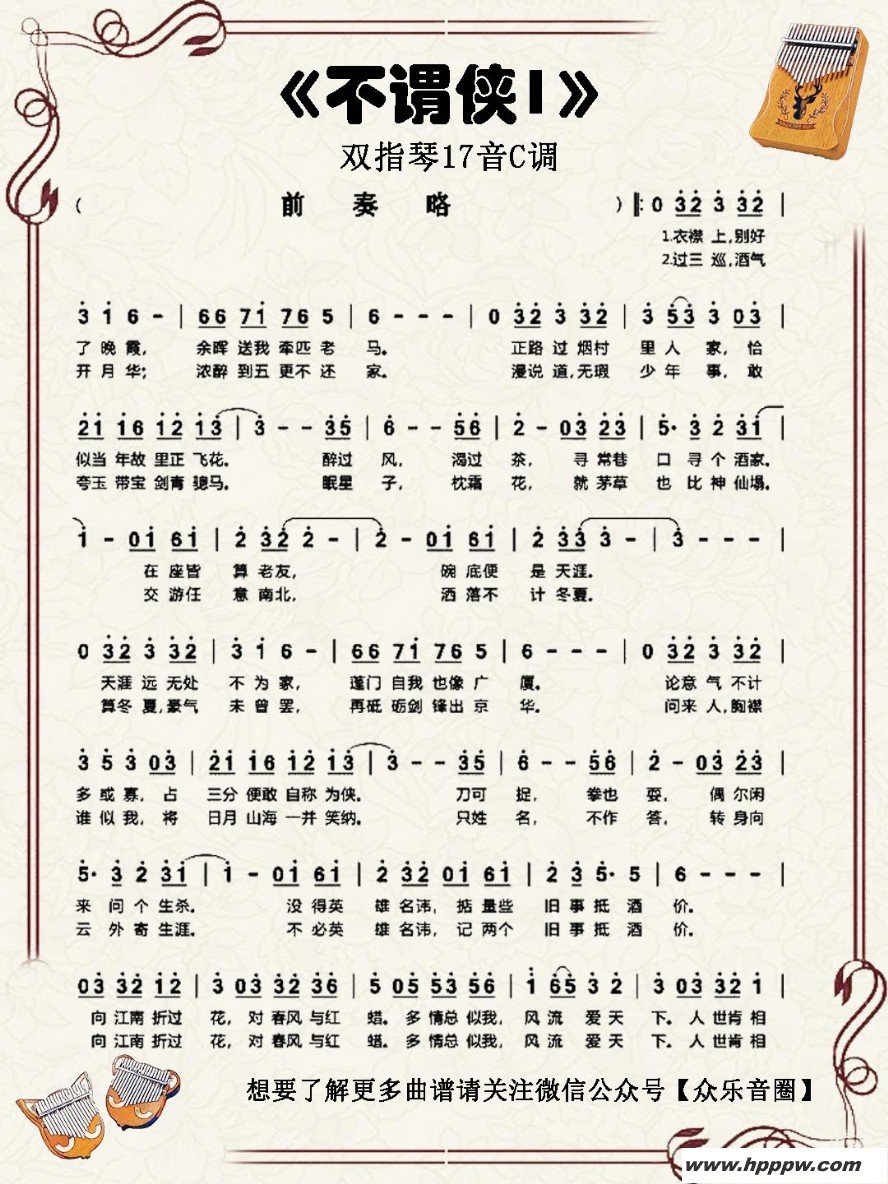 《不谓侠1》
双指琴17音C调
( 前 奏 略 ) ‖: 0 3̇2̇ 3̇ 3̇2̇ |
1.衣襟 上,别好
2.过三 巡,酒气
3̇ 1̇ 6 - | 66 71̇ 76 5 | 6 - - - | 0 3̇2̇ 3̇ 3̇2̇ | 3̇ 5̇3̇ 3̇ 03̇ |
了 晚 霞, 余晖 送我 牵匹 老 马。 正路 过 烟村 里 人 家, 恰
开 月 华; 浓醉 到五 更不 还 家。 漫说 道,无瑕 少 年 事, 敢
2̇1̇ 1̇6 1̇2̇ 1̇3̇ | 3̇ - - 3̇5̇ | 6̇ - - 5̇6̇ | 2̇ - 03̇ 2̇3̇ | 5̇· 3̇ 2̇ 3̇1̇ |
似当 年故 里正 飞花。 醉过 风, 渴过 茶, 寻 常巷 口 寻 个 酒家。
夸玉 带宝 剑青 骢马。 眠星 子, 枕霜 花, 就 茅草 也 比 神 仙塌。
1̇ - 01̇ 61̇ | 2̇ 3̇2̇ 2̇ - | 2̇ - 01̇ 61̇ | 2̇ 3̇3̇ 3̇ - | 3̇ - - - |
在 座皆 算 老友, 碗 底便 是 天涯。
交 游任 意 南北, 洒 落不 计 冬夏。
0 3̇2̇ 3̇ 3̇2̇ | 3̇ 1̇ 6 - | 66 71̇ 76 5 | 6 - - - | 0 3̇2̇ 3̇ 3̇2̇ |
天涯 远 无处 不 为 家, 蓬门 自我 也像 广 厦。 论意 气 不计
算冬 夏,豪气 未 曾 罢, 再砥 砺剑 锋出 京 华。 问来 人,胸襟
3̇ 5̇ 3̇ 03̇ | 2̇1̇ 1̇6 1̇2̇ 1̇3̇ | 3̇ - - 3̇5̇ | 6̇ - - 5̇6̇ | 2̇ - 03̇ 2̇3̇ |
多 或 寡, 占 三分 便敢 自称 为侠。 刀可 捉, 拳也 耍, 偶 尔闲
谁 似 我, 将 日月 山海 一并 笑纳。 只姓 名, 不作 答, 转 身向
5̇· 3̇ 2̇ 3̇1̇ | 1̇ - 01̇ 61̇ | 2̇ 3̇2̇ 01̇ 61̇ | 2̇ 3̇ 5̇· 5̇ | 6̇ - - - |
来 问 个 生杀。 没 得英 雄 名讳, 掂 量些 旧 事 抵 酒 价。
云 外 寄 生涯。 不 必英 雄 名讳, 记 两个 旧 事 抵 酒 价。
03̇ 3̇2̇ 1̇2̇ | 3̇ 03̇ 3̇2̇ 3̇6̇ | 5̇ 05̇ 5̇3̇ 5̇6̇ | 1̇ 65 3̇ 2̇ | 3̇ 03̇ 3̇2̇ 1̇ |
向 江南 折过 花, 对 春风 与红 蜡。多 情总 似我, 风 流 爱 天 下。人 世肯 相
向 江南 折过 花, 对 春风 与红 蜡。多 情总 似我, 风 流 爱 天 下。人 世肯 相
想要了解更多曲谱请关注微信公众号【众乐音圈】
www.hpppw.com